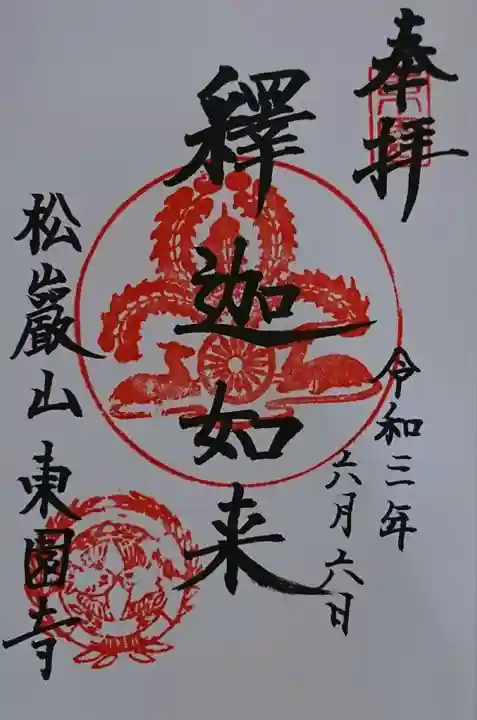 奉拝
令和三年
六月六日
釋迦如来
松巖山東園寺